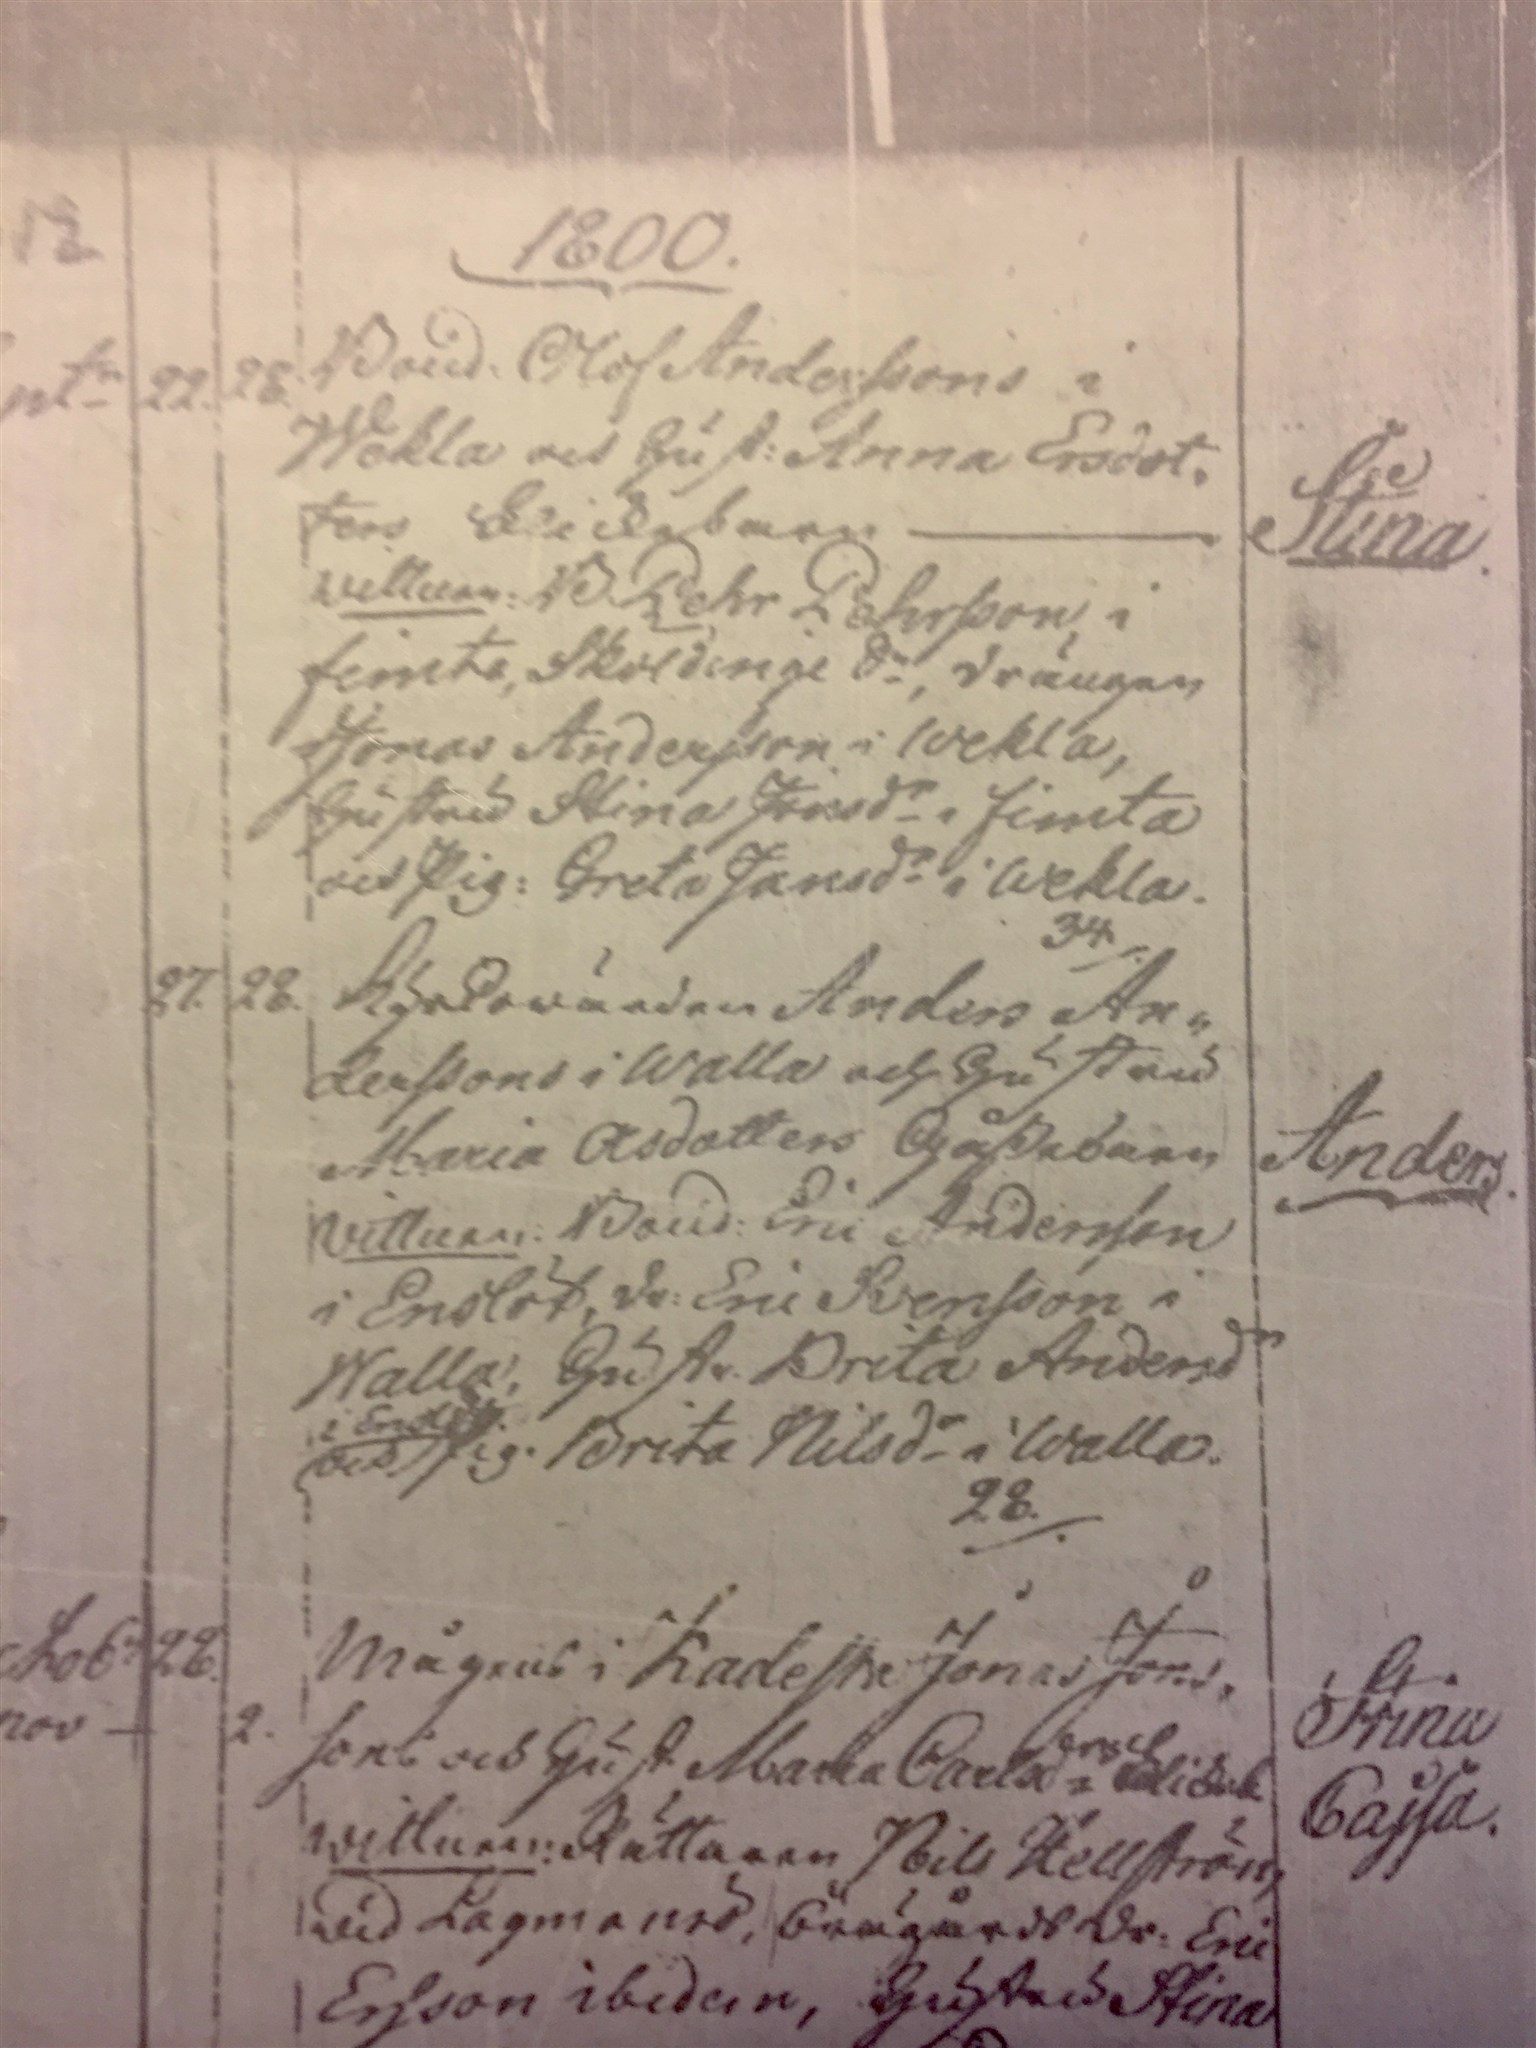 1800.
22. 28. Bond. Olof Anderssons i
Wekla och Hust: Anna Ersdot,
ters Flickebarn Stina.
Wittnen: B. Pehr Pehrsson i
fimta, Sköldinge Sn, Drängen
Jonas Andersson i Wekla,
Hustrun Stina Jonsdr i fimta
och Pig: Greta Jansdr i Wekla.
34.
27. 28. Kyrkowärden Anders An-
derssons i Walla och Hustrus
Maria Olsdotters Gåssebarn Anders.
Wittnen: Bond: Eric Andersson
i Enslöt, Dr: Eric Svensson i
Walla, Hustr. Brita Andersdr
i
och Pig. Brita Nilsdr i Walla.
28.
28. Mågens i Kadesta Jonas Jons,
nov 2. sons och Hust Maria Carlsdr Stina
Cajsa.
Wittnen: Rättaren Nils Hellström,
vid Lagmansö, Dr: Eric
Ersson ibidem, Hustrun Stina